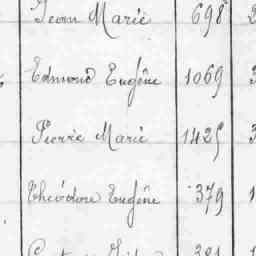 Jean Marie 698 2
Edmond Eugène 1069 3
Pierre Marie 1425 3
Théodore Eugène 379 1